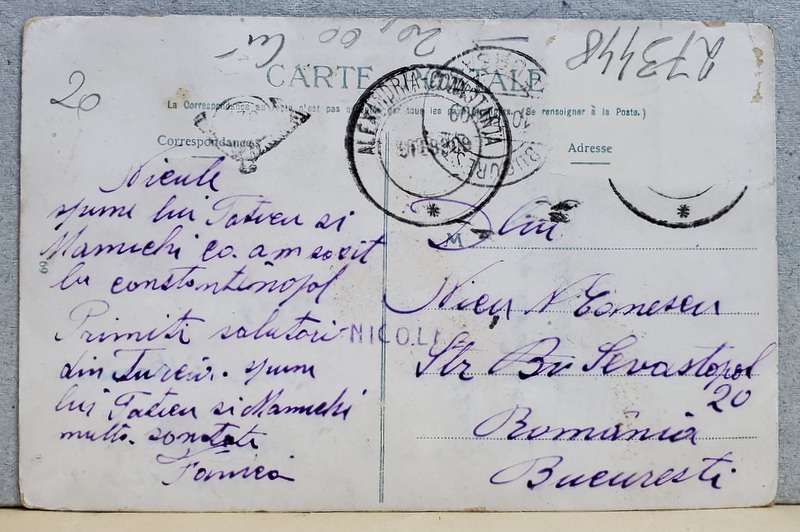 273448
20,00 lei
20
CARTE POSTALE
La Correspondance au recto n'est pas par tous les pays (Se renseigner à la Poste.)
ALEXANDRIA-CONSTANTA
Correspondance
Adresse
Nicule
spune lui Taticu si
Mamichi ca am sosit
la constantinopol
Primiti salutari
din Turcia. spune
lui Taticu si Mamichi
multa sanatate
Fanica
69
M
Dlui
Nicu N Ionescu
NICOLA
Str Bv Sevastopol
20
România
Bucuresti